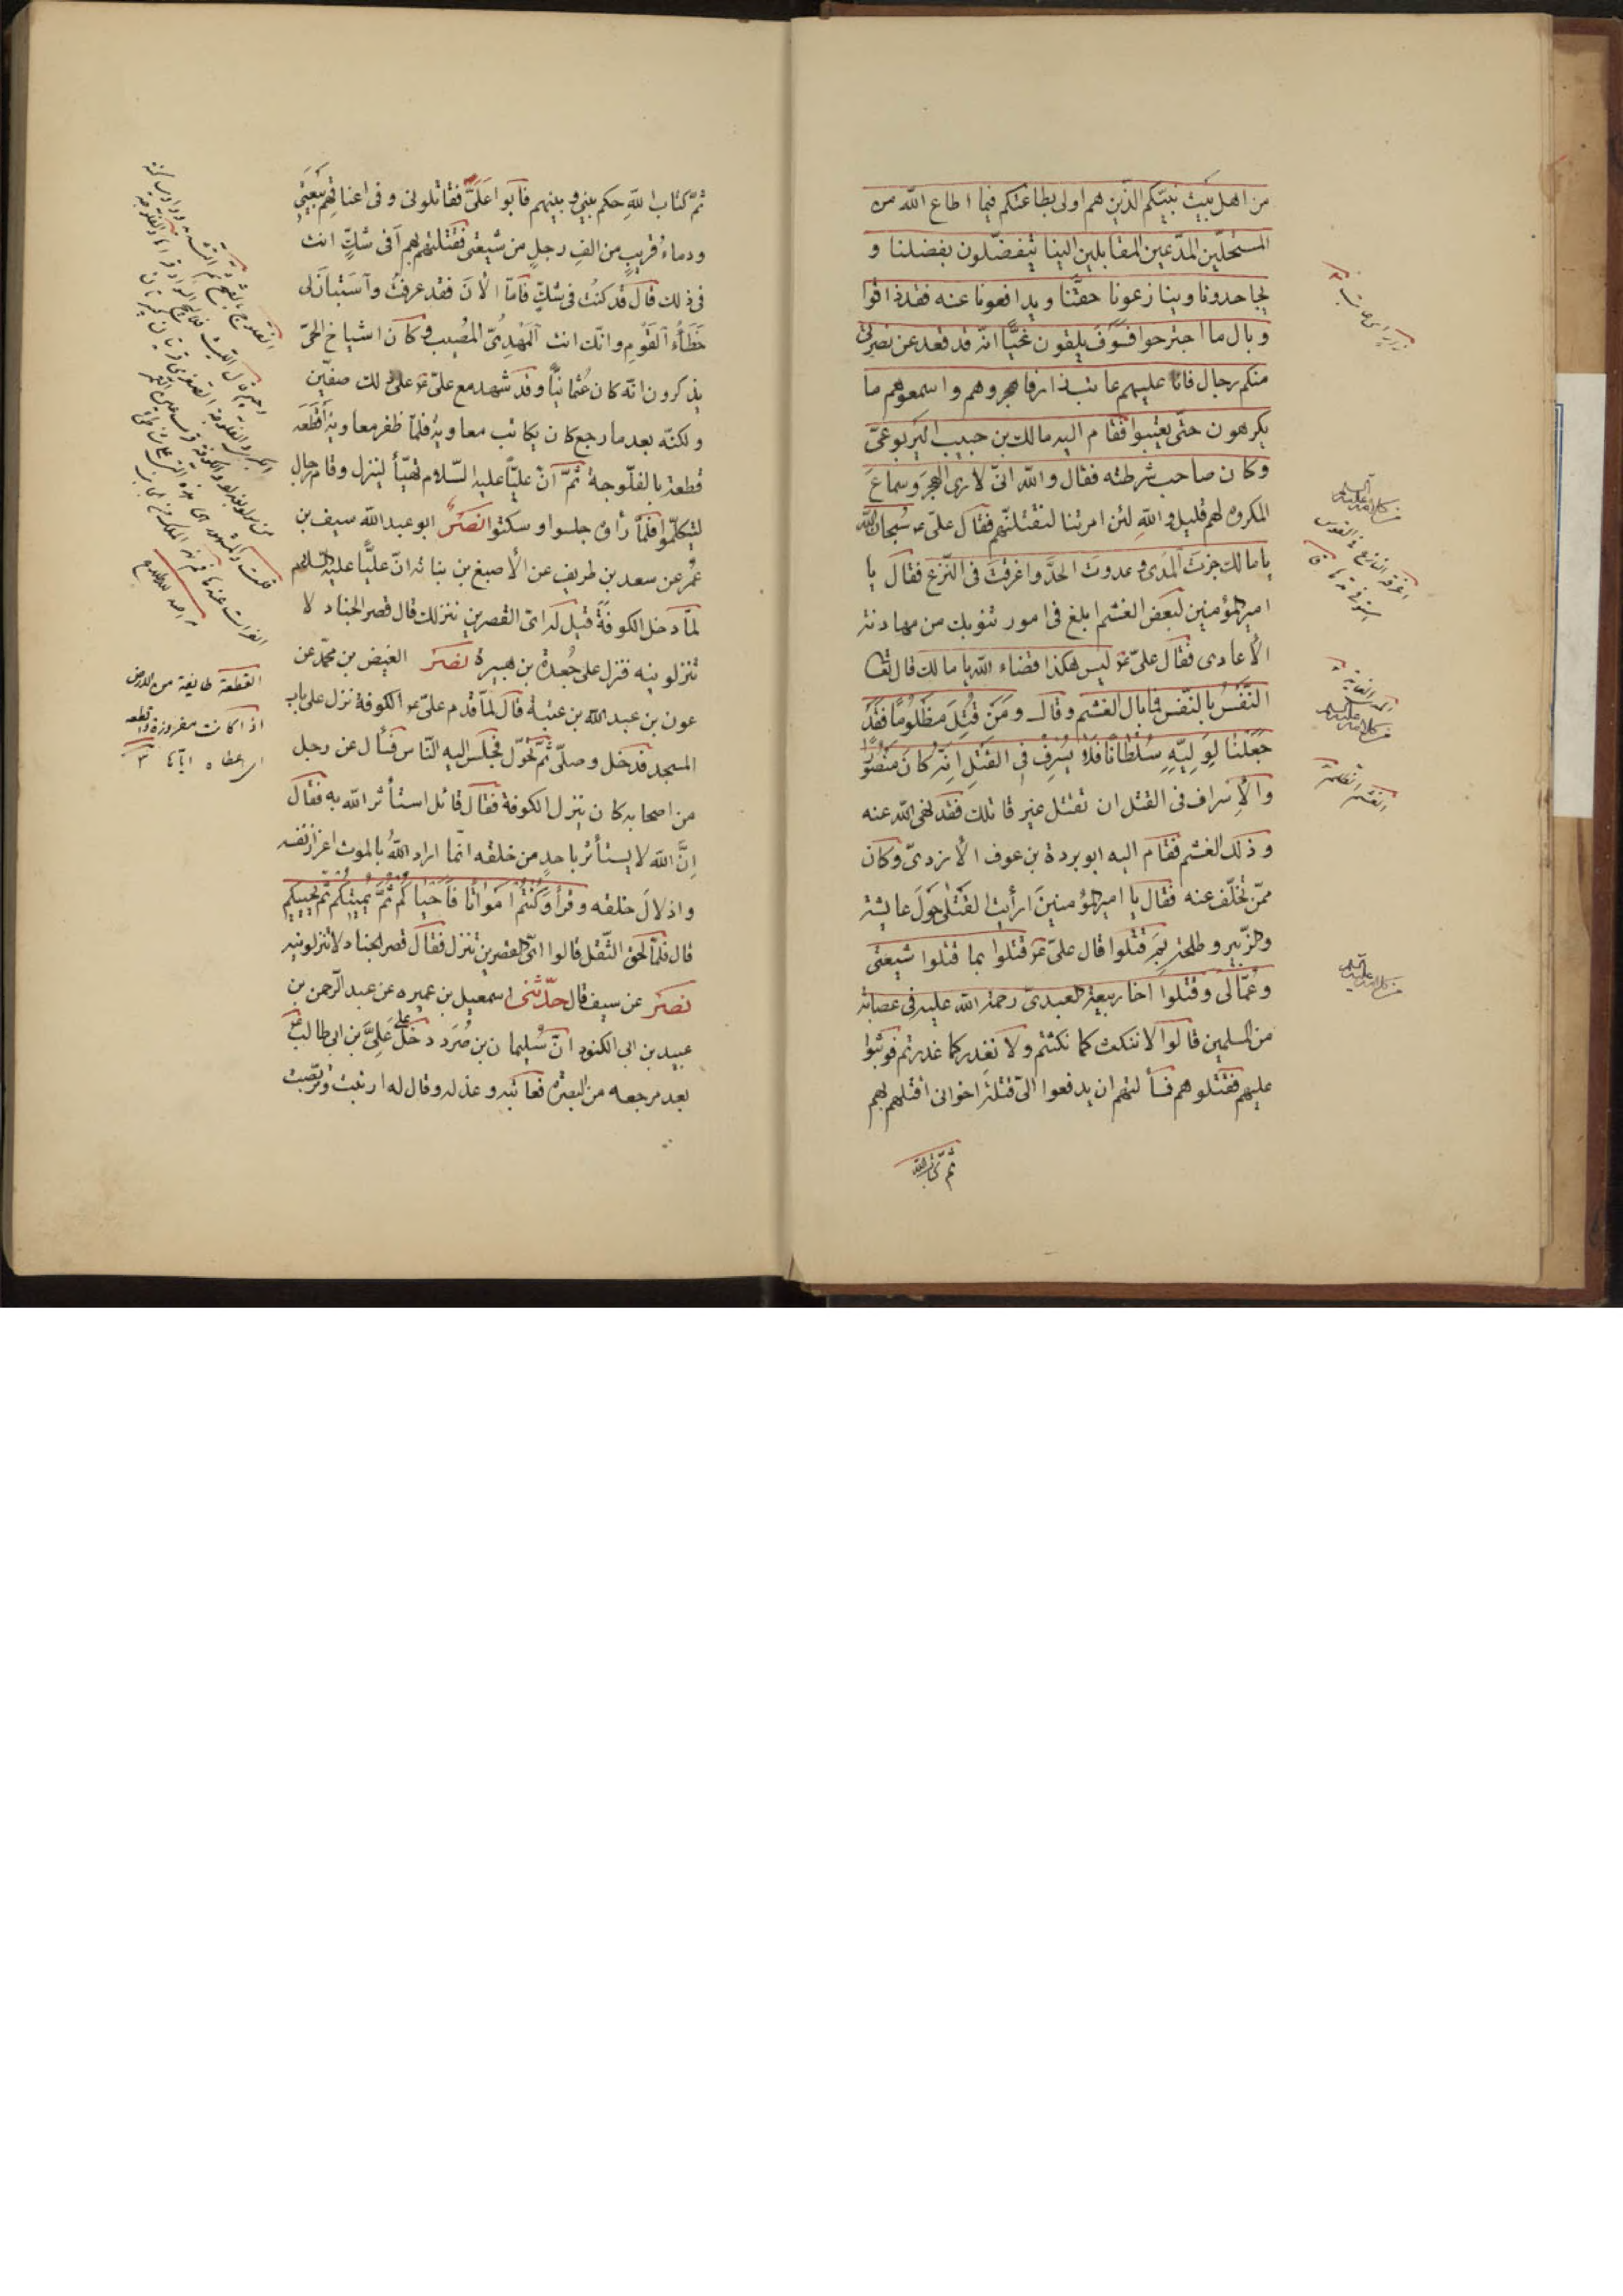 من اهل بيت نبيّكم الّذين هم اولى بطاعتكم فيما اطاع الله من
المستحلّين المدّعين المقابلين الينا يتفضّلون بفضلنا و
يجاحدونا وينازعونا حقّنا ويدافعونا عنه فقد ذاقوا
وبال ما اجترحوا فسوف يلقون غيّا انّه قد قعد عن نصرتى
منكم رجال فانا عليهم عاتب زار فاهجروهم واسمعوهم ما
يكرهون حتّى يعتبوا فقام اليه مالك بن حبيب اليربوعىّ
وكان صاحب شرطته فقال والله انّى لارى الهجر وسماع
المكروه لهم قليل والله لئن امرتنا لنقتلنّهم فقال علىّ ع سبحان الله
يا مالك جزت المدى وعدوت الحدّ واغرقت فى النّزع فقال يا
امير المؤمنين لبعض الغشم ابلغ فى امور تنوبك من مهادنة
الأعادى فقال علىّ ع ليس هكذا قضاء الله يا مالك قال تعا
النّفس بالنّفس فما بال الغشم وقال ومن قتل مظلوما فقد
جعلنا لوليّه سلطانا فلا يسرف فى القتل انّه كان منصورا
والأسراف فى القتل ان تقتل غير قاتلك فقد نهى الله عنه
وذلك الغشم فقام اليه ابو بردة بن عوف الأزدىّ وكان
ممّن تخلّف عنه فقال يا امير المؤمنين ارأيت القتلى حول عايشة
والزّبير وطلحة بم قتلوا قال علىّ ع قتلوا بما قتلوا شيعتى
وعمّالى وقتلوا اخا ربيعة العبدىّ رحمة الله عليه فى عصابة
من المسلمين قالوا لا ننكث كما نكثتم ولا نغدر كما غدرتم فوثبوا
عليهم فقتلوهم فسألتهم ان يدفعوا الىّ قتلة اخوانى اقتلهم بهم
ثمّ كتاب الله
الغشم الظلم
ثمّ كتاب الله حكم بينى وبينهم فابوا علىّ فقاتلونى وفى اعناقهم بيعتى
ودماء قريب من الف رجل من شيعتى فقتلتهم بهم أفى شكّ انت
فى ذلك قال قد كنت فى شكّ فامّا الأن فقد عرفت واستبان لى
خطاء القوم وانّك انت المهدىّ المصيب وكان اشياخ الحىّ
يذكرون انّه كان عثمانيّا وقد شهد مع علىّ ع على ذلك صفّين
ولكنّه بعد ما رجع كان يكاتب معاوية فلمّا ظفر معاوية أقطعه
قطعة بالفلّوجة ثمّ انّ عليّا عليه السّلام تهيّأ لينزل وقام رجال
ليتكلّموا فلمّا رأوه جلسوا وسكتوا نصر ابو عبد الله سيف بن
عمر عن سعد بن طريف عن الأصبغ بن نباتة انّ عليّا عليه السلام
لمّا دخل الكوفة قيل له اىّ القصرين ننزلك قال قصر الخبال لا
تنزلونيه فنزل على جعدة بن هبيرة نصر الفيض بن محمّد عن
عون بن عبد الله بن عتبة قال لمّا قدم علىّ ع الكوفة نزل على باب
المسجد فدخل وصلّى ثمّ تحوّل فجلس اليه النّاس فسأل عن رجل
من اصحابه كان ينزل الكوفة فقال قائل استأثر الله به فقال
انّ الله لا يستأثر باحد من خلقه انّما اراد الله بالموت اعزاز نفسه
واذلال خلقه وقرأ وكنتم امواتا فأحياكم ثمّ يميتكم ثمّ يحييكم
قال فلمّا لحق الثّقل قالوا اىّ القصرين تنزل فقال قصر الخبال لا تنزلونيه
نصر عن سيف قال حدّثنى اسمعيل بن عميره عن عبد الرّحمن بن
عبيد بن ابى الكنود انّ سليمان بن صرد دخل على علىّ بن ابى طالب ع
بعد مرجعه من البصرة فعاتبه وعذله وقال له ارتبت وتربّصت
القطعة طايفة من الارض
اذا كانت مفروزة